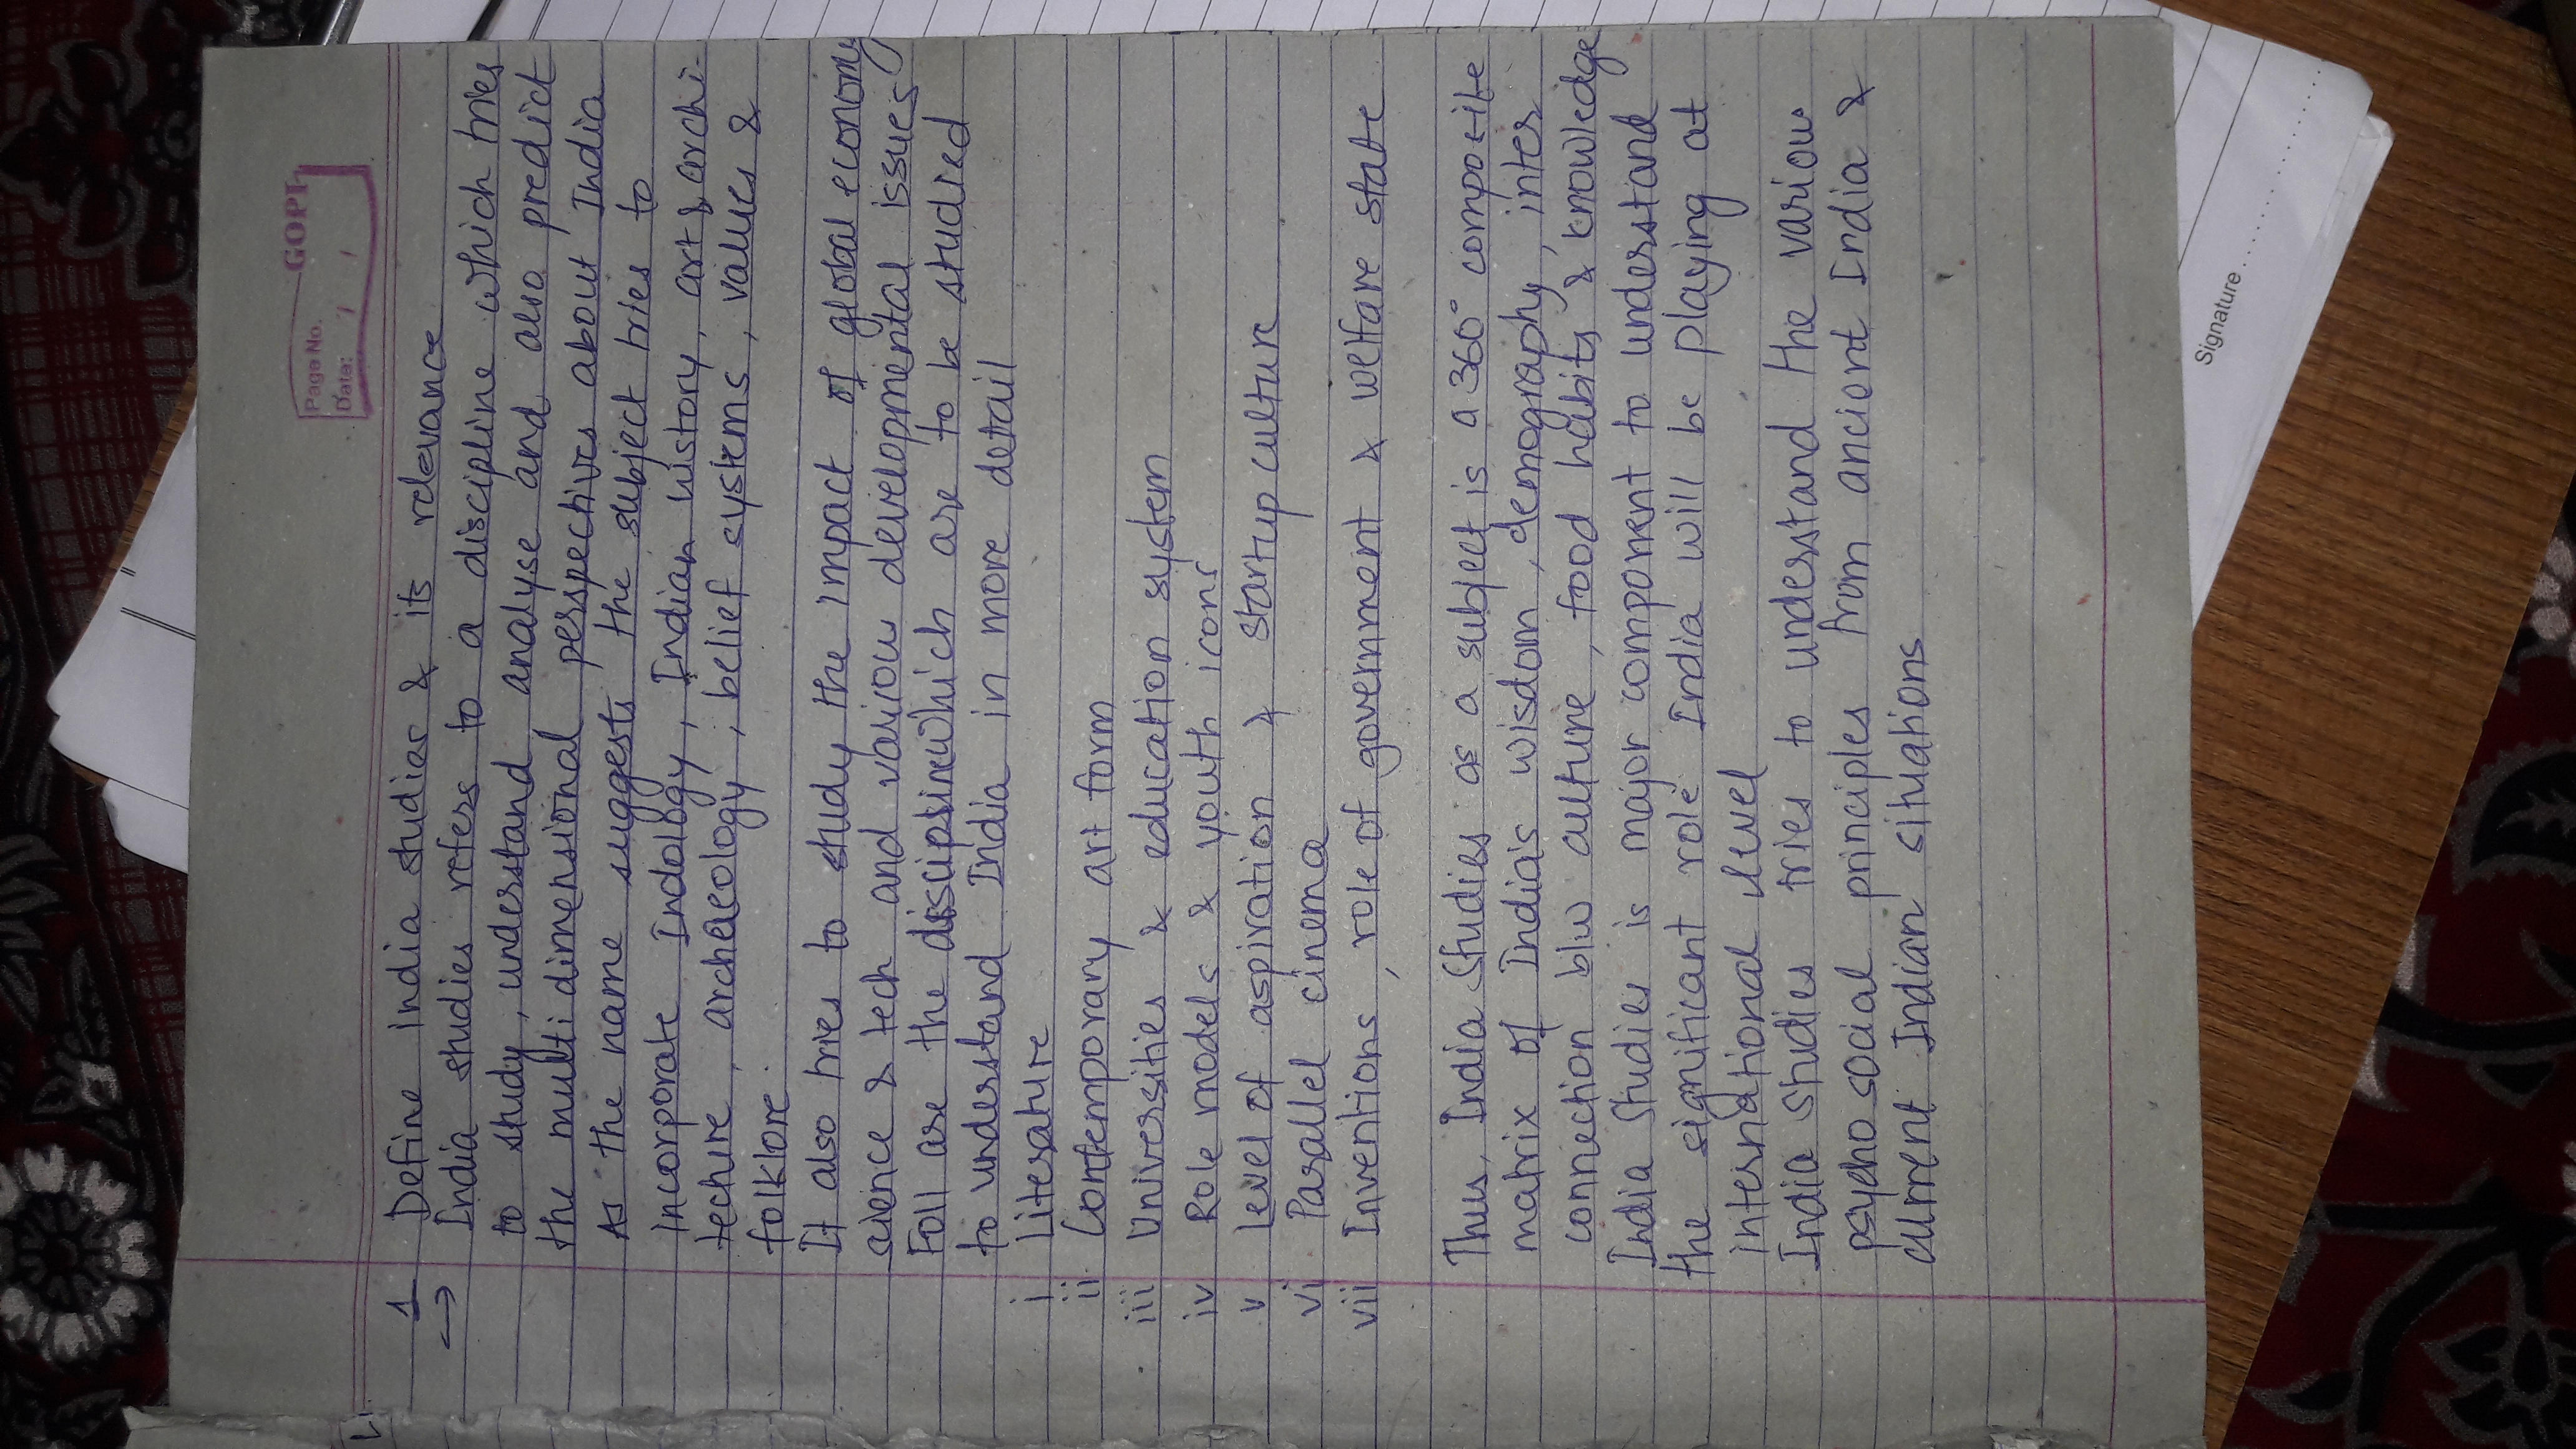 GOPI
Page No.
Date: / /
1 Define India studies & its relevance
→ India studies refers to a discipline which tries
to study, understand, analyse and also predict
the multi dimensional perspectives about India
As the name suggests the subject tries to
incorporate Indology, Indian history, art & archi-
tecture, archaeology, belief systems, values &
folklore.
It also tries to study the impact of global economy
science & tech and various developmental issues
Foll are the discipline which are to be studied
to understand India in more detail
i Literature
ii Contemporary art form
iii Universities & education system
iv Role models & youth icons
v Level of aspiration & startup culture
vi Parallel cinema
vii Inventions, role of government & welfare state
Thus, India Studies as a subject is a 360° composite
matrix of India's wisdom, demography, inter
connection b/w culture, food habits & knowledge
India Studies is major component to understand
the significant role India will be playing at
international level
India Studies tries to understand the various
psycho social principles from ancient India &
current Indian situations
Signature